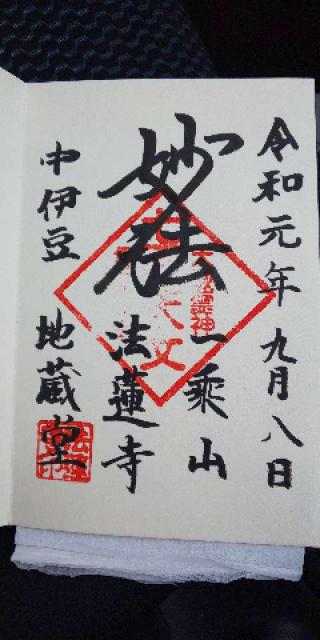 令和元年九月八日
一乗山
妙法
法蓮寺
中伊豆
地蔵堂